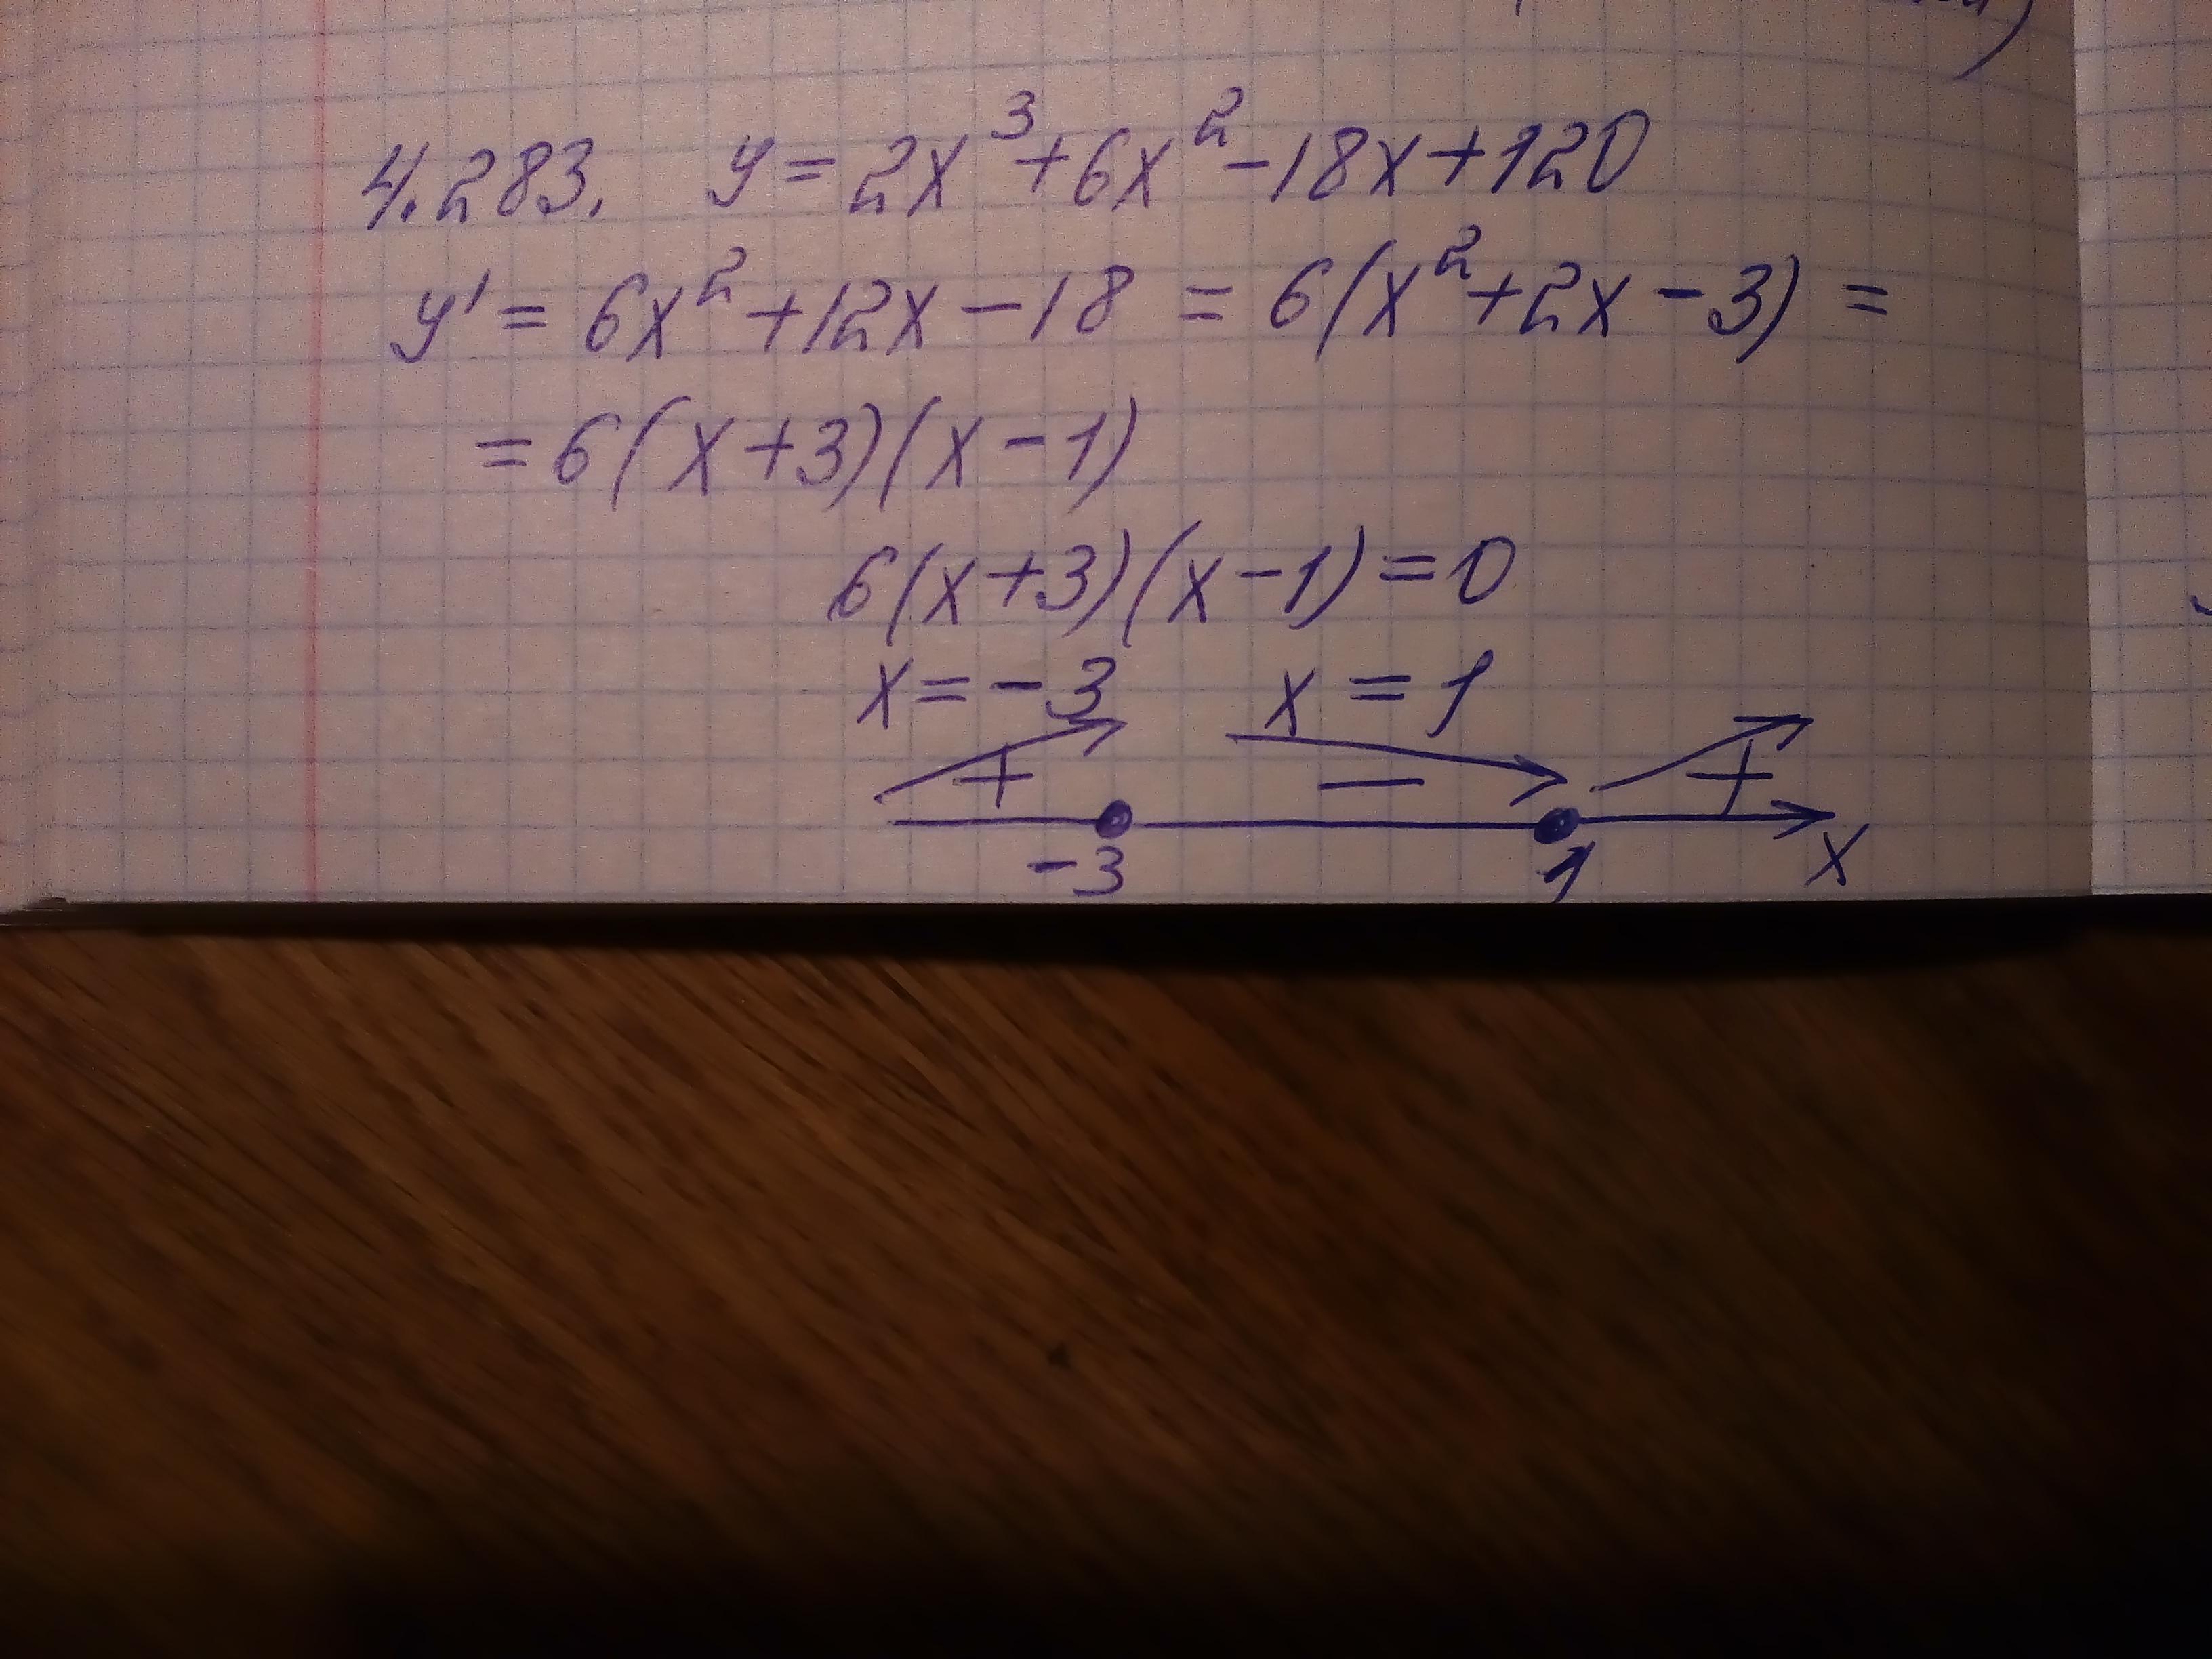 4.283. y = 2x³+6x²-18x+120
y' = 6x²+12x-18 = 6(x²+2x-3) =
= 6(x+3)(x-1)
6(x+3)(x-1)=0
x=-3 x=1
+ − +
-3 1 x